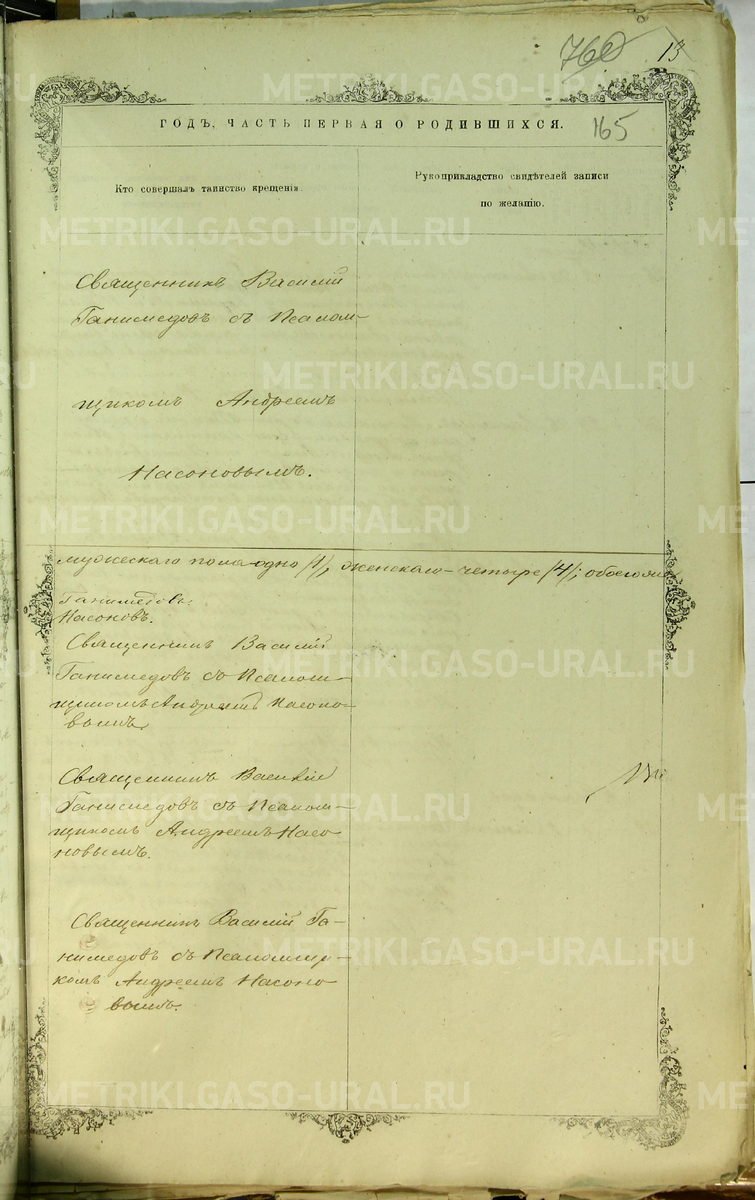 760 13
165
ГОДЪ, ЧАСТЬ ПЕРВАЯ О РОДИВШИХСЯ.
Кто совершалъ таинство крещенія.
Рукоприкладство свидѣтелей записи
по желанію.
Священникъ Василій
Ганимедовъ съ Псалом-
щикомъ Андреемъ
Насоновымъ.
мужескаго пола одно /1/, женскаго - четыре /4/; обоего
Ганимедовъ.
Насоновъ.
Священникъ Василій
Ганимедовъ съ Псалом-
щикомъ Андреемъ Насоно-
вымъ.
Священникъ Василій
Ганимедовъ съ Псалом-
щикомъ Андреемъ Насо-
новымъ.
Священникъ Василій Га-
нимедовъ съ Псаломщи-
комъ Андреемъ Насоно-
вымъ.
METRIKI.GASO-URAL.RU